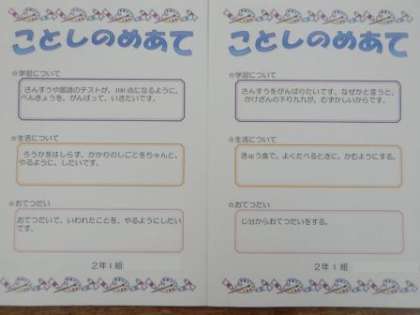 ことしのめあて
☆学習について
さんすうや国語のテストが、100点になるように、
べんきょうを、がんばって、いきたいです。
☆生活について
ろうかをはしらず、かかりのしごとをちゃんと、
やるように、したいです。
☆おてつだい
おてつだいで、いわれたことを、やるようにしたい
です。
2年1組
ことしのめあて
☆学習について
さんすうをがんばりたいです。なぜかと言うと、
かけざんの下り九九が、むずかしいからです。
☆生活について
きゅう食で、よくたべるときに、かむようにする。
☆おてつだい
じ分からおてつだいをする。
2年1組